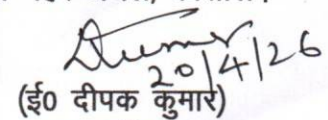 20/4/26
(ई० दीपक कुमार)